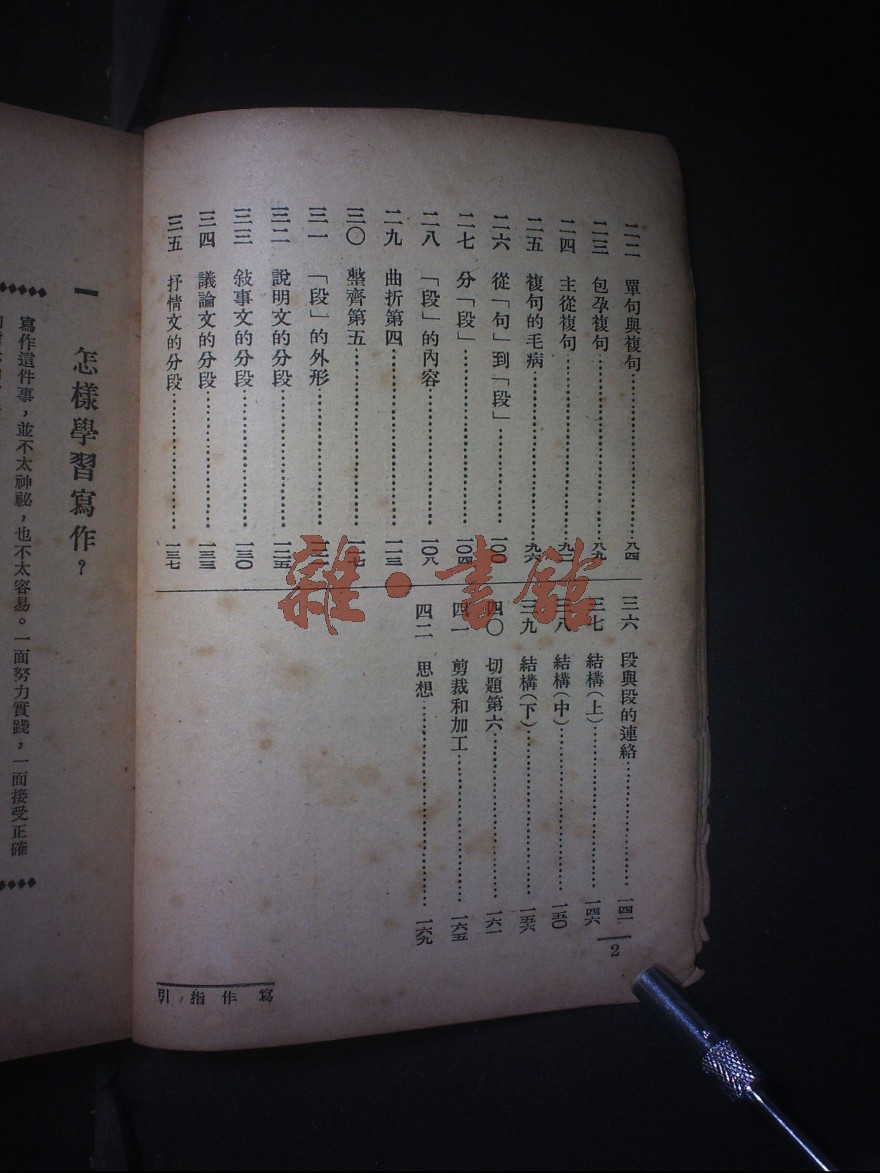 二二 單句與複句……八四
二三 包孕複句……八九
二四 主從複句……
二五 複句的毛病……九六
二六 從「句」到「段」……一〇〇
二七 分「段」……一〇四
二八 「段」的內容……一〇八
二九 曲折第四……一一三
三〇 整齊第五……一一七
三一 「段」的外形……
三二 說明文的分段……一二五
三三 敍事文的分段……一三〇
三四 議論文的分段……一三三
三五 抒情文的分段……一三七
三六 段與段的連絡……一四一
三七 結構(上)……一四六
三八 結構(中)……一五〇
三九 結構(下)……一五六
四〇 切題第六……一六一
四一 剪裁和加工……一六五
四二 思想……一六九
2
寫作指引
一 怎樣學習寫作?
寫作這件事,並不太神祕,也不太容易。一面努力實踐,一面接受正確
雜·書館